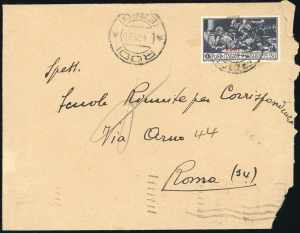 RODI
Spett.
Scuole Riunite per Corrispondenza
Via Arno 44
Roma (34)